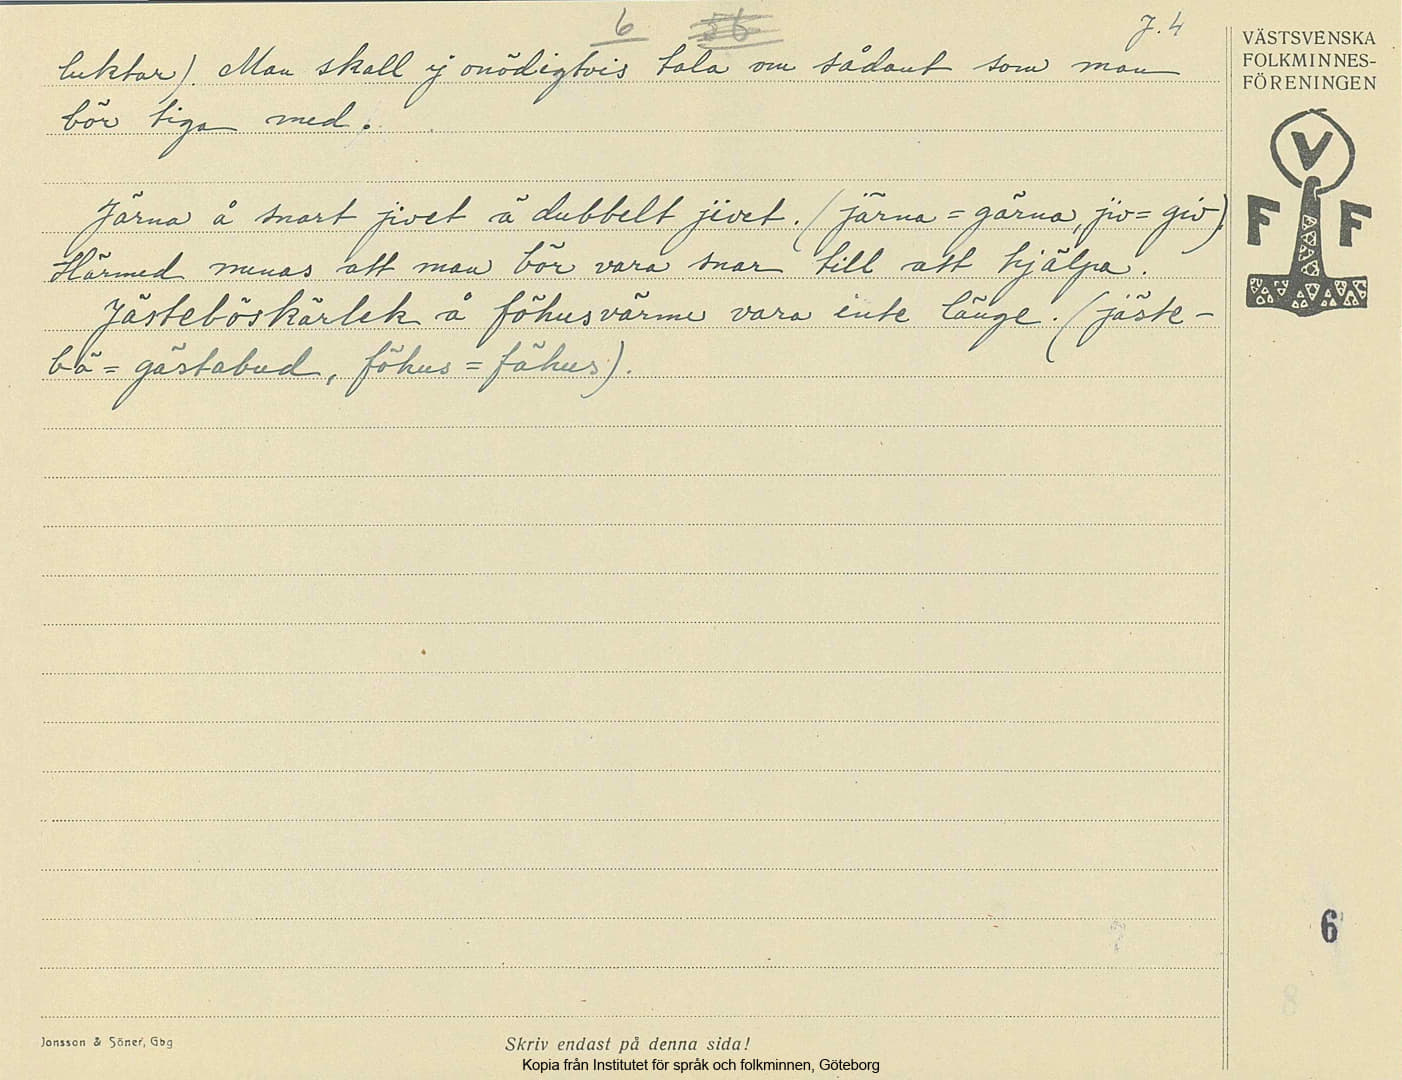 6 56 J. 4
VÄSTSVENSKA
FOLKMINNES-
FÖRENINGEN
luktar). Man skall ej onödigtvis tala om sådant som man
bör tiga med.
V
F F
Järna å snart jivet ä dubbelt jivet. (järna = gärna, jiv = giv).
Härmed menas att man bör vara snar till att hjälpa.
Jästeböskärlek å föhusvärme vara inte länge. (jäste-
bö = gästabud, föhus = fähus).
6
Jonsson & Söner, Gbg
Skriv endast på denna sida!
Kopia från Institutet för språk och folkminnen, Göteborg